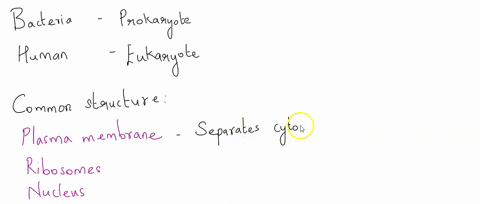 Bacteria - Prokaryote
Human - Eukaryote
Common structure:
Plasma membrane - Separates cyto
Ribosomes
Nucleus